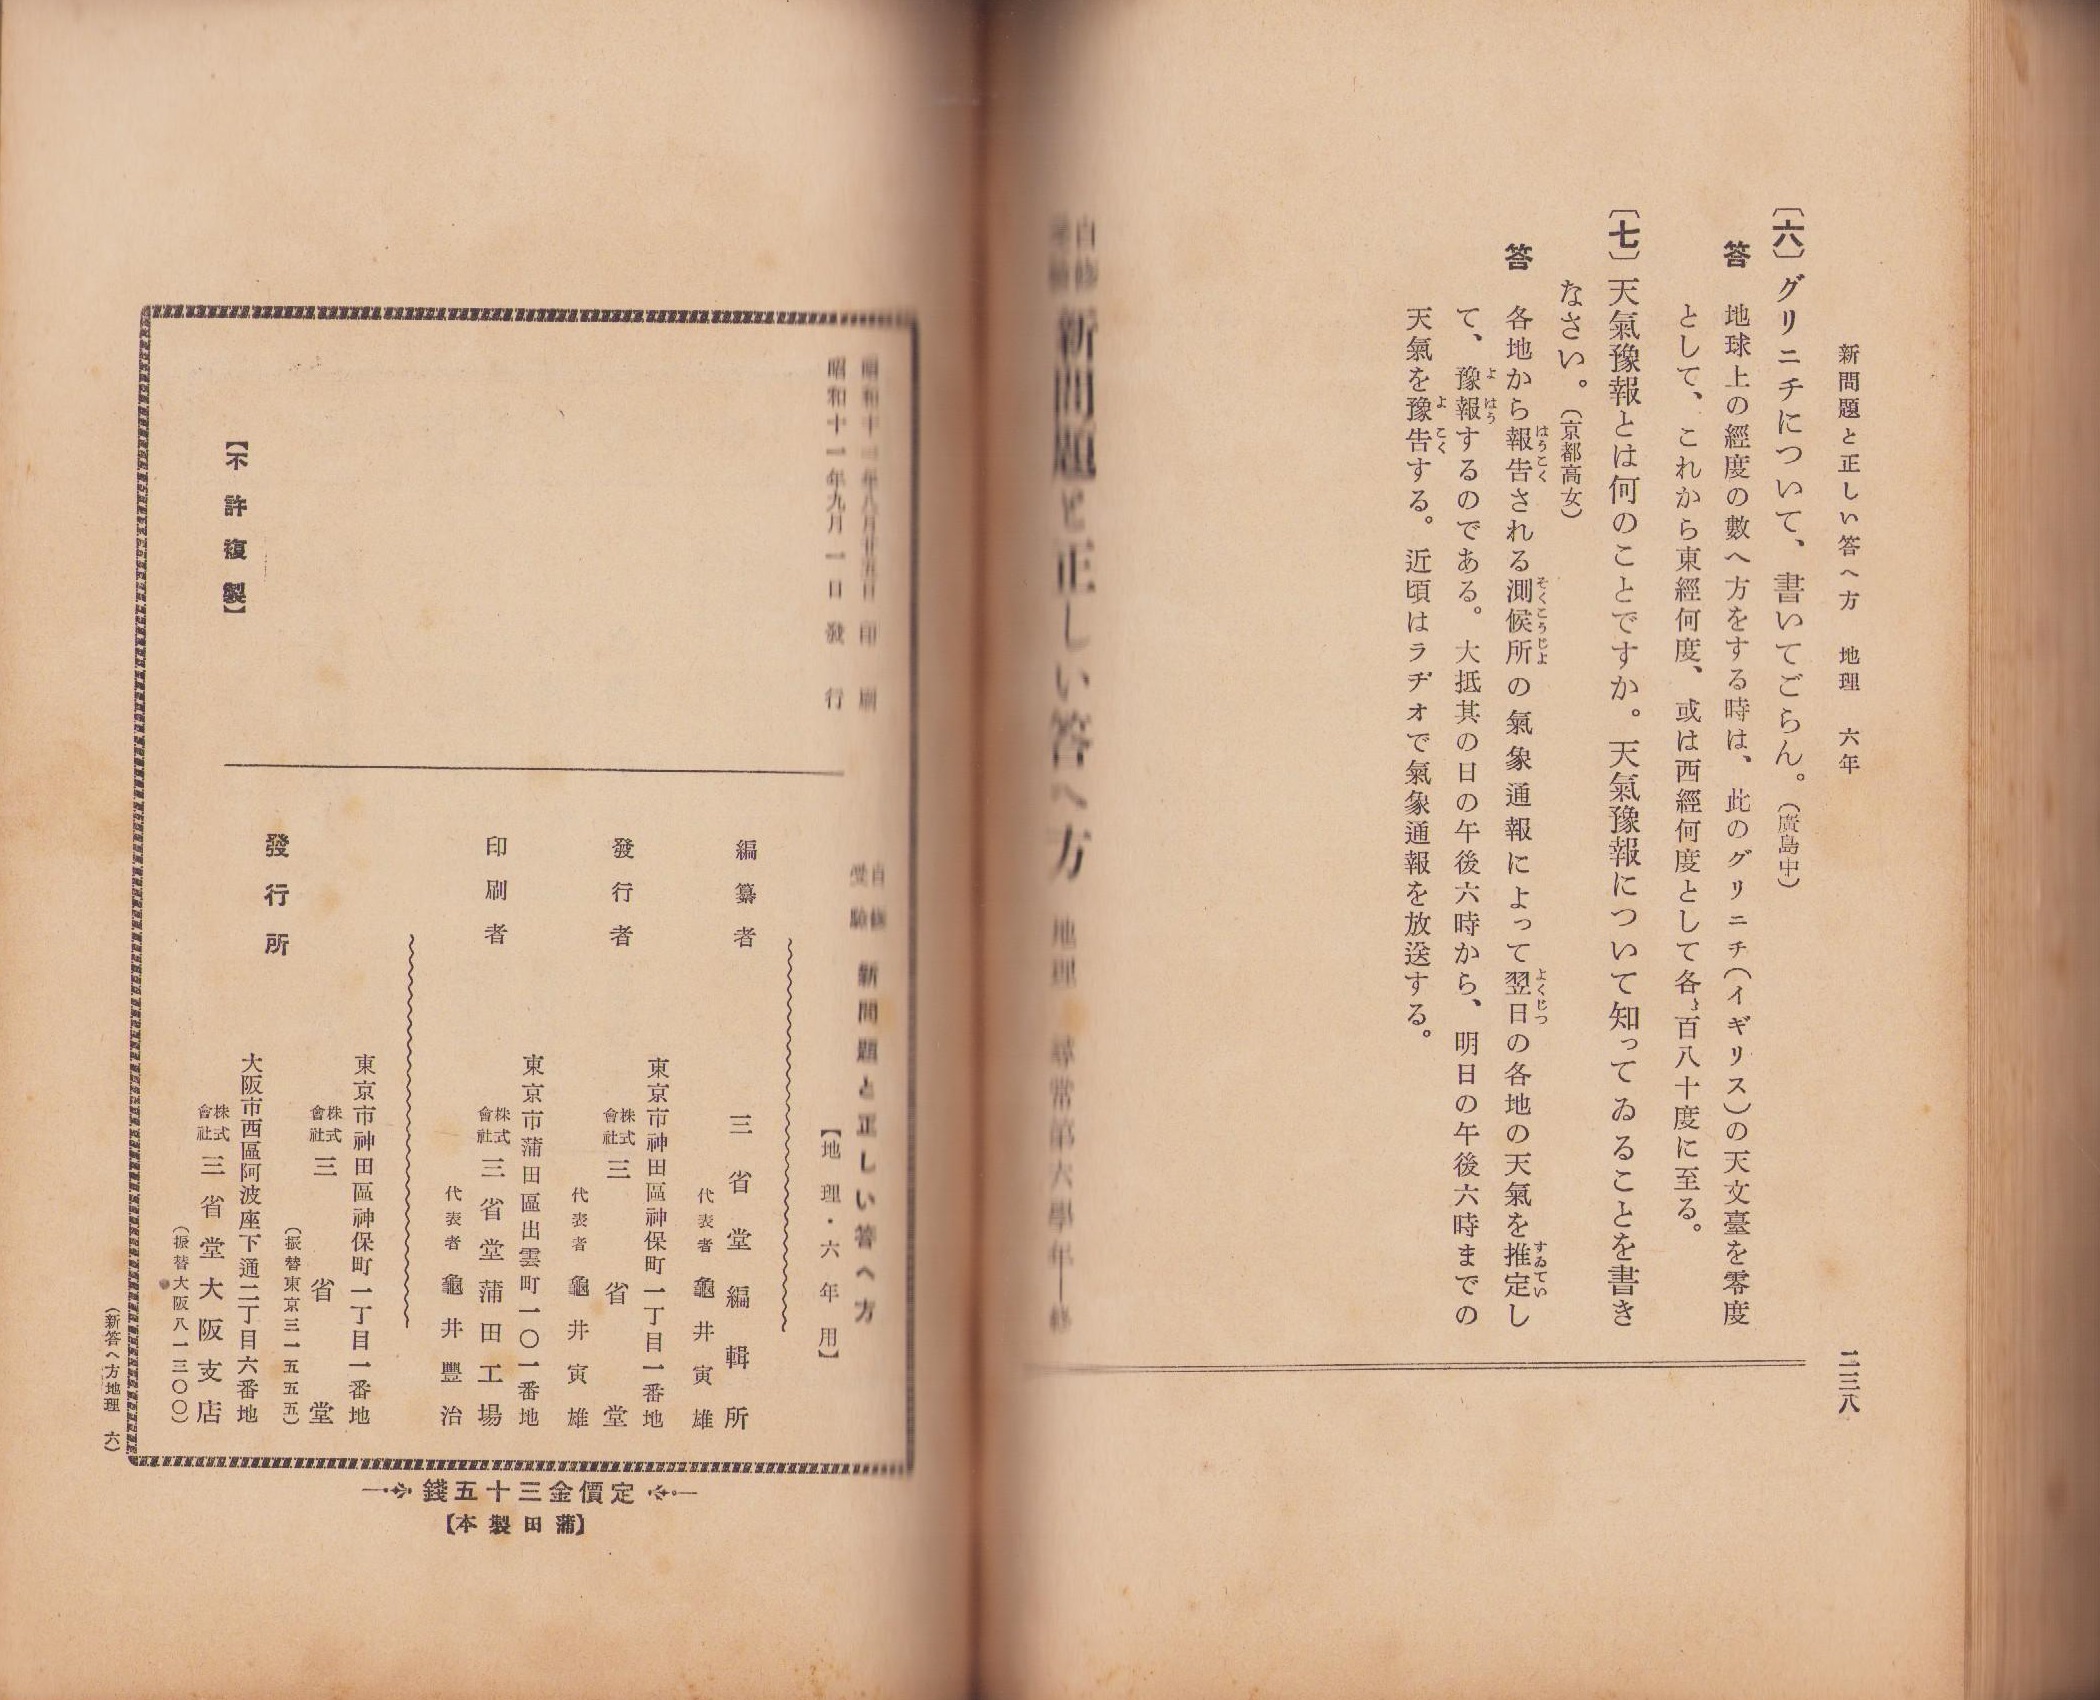 新問題と正しい答へ方　地理　六年
二三八
〔六〕グリニチについて、書いてごらん。（廣島中）
答　地球上の經度の數へ方をする時は、此のグリニチ（イギリス）の天文臺を零度
として、これから東經何度、或は西經何度として各〻百八十度に至る。
〔七〕天氣豫報とは何のことですか。天氣豫報について知ってゐることを書き
なさい。（京都高女）
答　各地から報告される測候所の氣象通報によって翌日の各地の天氣を推定し
て、豫報するのである。大抵其の日の午後六時から、明日の午後六時までの
天氣を豫告する。近頃はラヂオで氣象通報を放送する。
新問題と正しい答へ方　地理　尋常第六學年
昭和十一年八月廿五日印刷
昭和十一年九月一日發行
【不許複製】
自修受驗　新問題と正しい答へ方
【地理・六年用】
編纂者　三省堂編輯所
代表者　龜井寅雄
東京市神田區神保町一丁目一番地
發行者　株式會社　三省堂
代表者　龜井寅雄
東京市蒲田區出雲町一〇一番地
印刷者　株式會社　三省堂蒲田工場
代表者　龜井豐治
發行所
東京市神田區神保町一丁目一番地
株式會社　三省堂
（振替東京三一五五五）
大阪市西區阿波座下通二丁目六番地
株式會社　三省堂大阪支店
（振替大阪八一三〇〇）
（新答へ方地理　六）
錢五十三金價定
【本製田蒲】